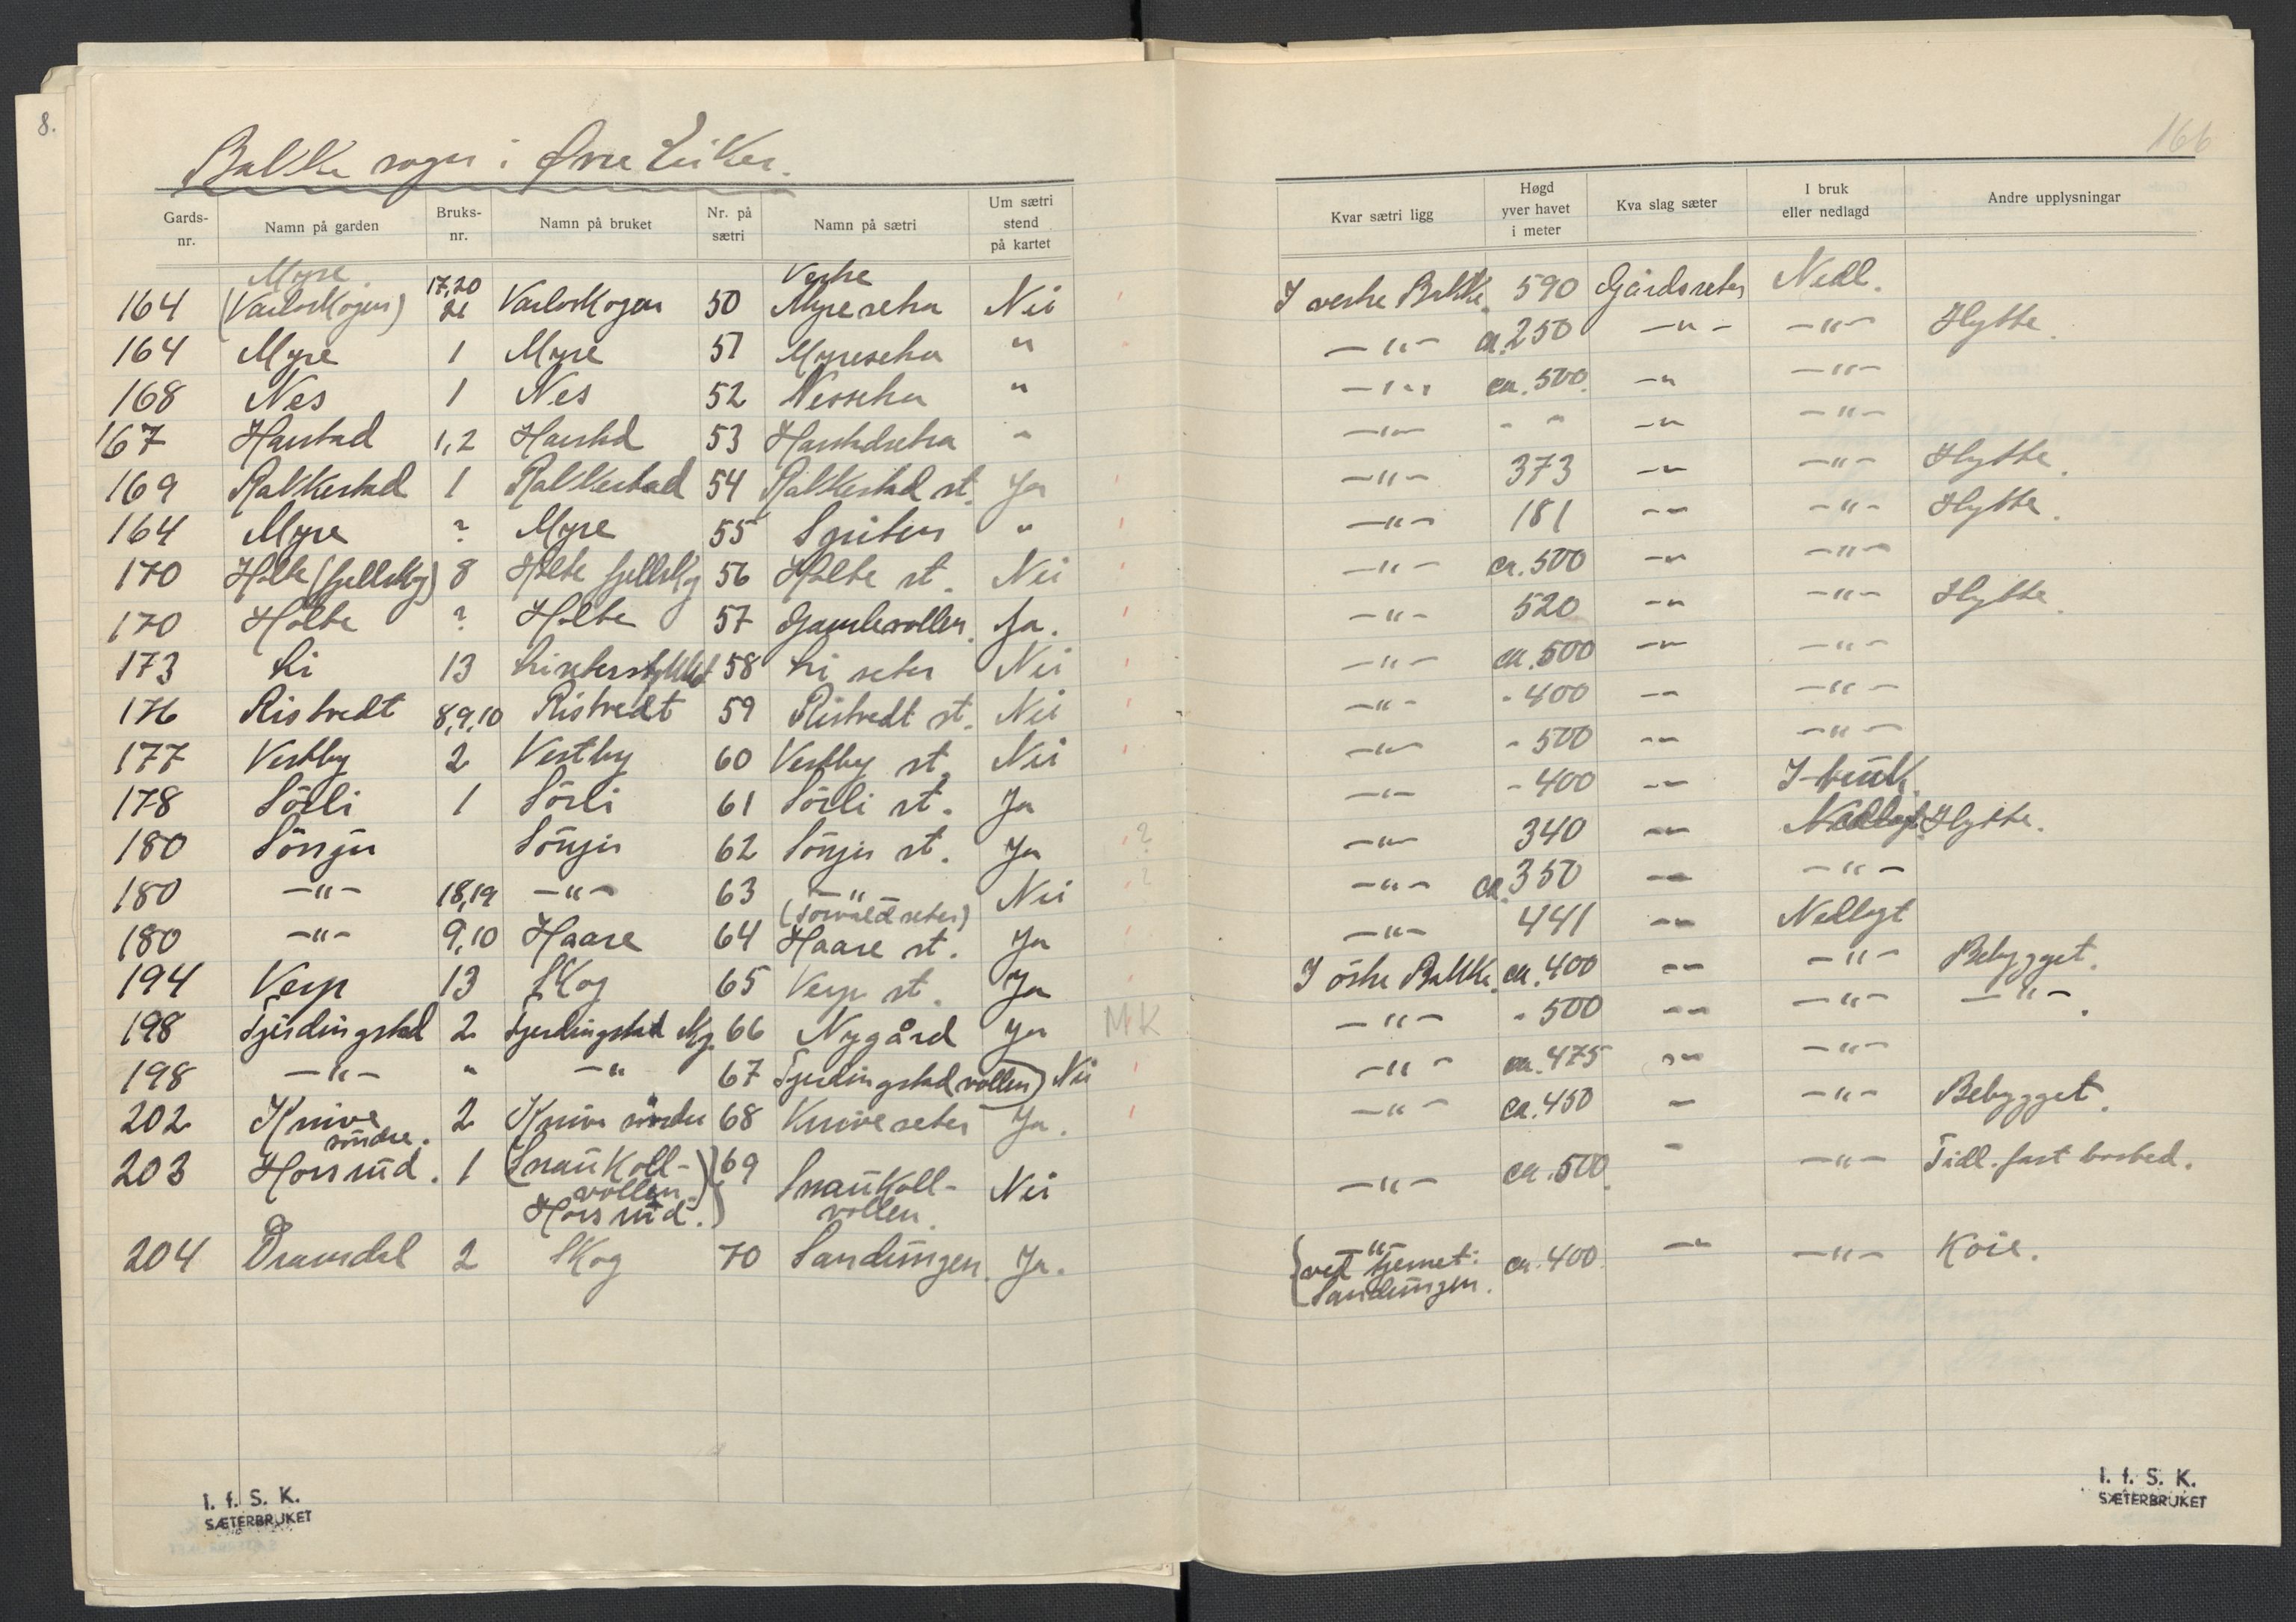 8.
166
Bakke sogn i Øvre Eiker.
Gards-nr. Namn på garden Bruks-nr. Namn på bruket Nr. på sætri Namn på sætri Um sætri stend på kartet Kvar sætri ligg Høgd yver havet i meter Kva slag sæter I bruk eller nedlagd Andre upplysningar
Myre 17,20 Vestre
164 (Varloskogen) 21 Varloskogen 50 Myresetra Nei I vestre Bakke. 590 Gårdsseter Nedl.
164 Myre 1 Myre 51 Myresetra " —"— ca. 250 —"— —"— Hytte.
168 Nes 1 Nes 52 Nessetra " —"— ca. 500. —" —"—
167 Harstad 1,2 Harstd 53 Harstadsetra " —"— - " —" —"—
169 Rakkestad 1 Rakkestad 54 Rakkestad st. Ja —"— 373 —" —"— Hytte.
164 Myre ? Myre 55 " —"— 181 —" —"— Hytte.
170 Holte (fjellskg) 8 Holte fjellskg 56 Holte st. Nei —"— ca. 500 —" —"—
170 Holte ? Holte 57 Gamlevollen. Ja. —"— 520 —" —"— Hytte.
173 Li 13 Liseterstykket 58 Li seter Nei —"— ca. 500 —" —"—
176 Ristvedt 8,9,10 Ristvedt 59 Ristvedt st. Nei —"— - 400 —" —"—
177 Vestby 2 Vestby 60 Vestby st. Nei —"— - 500 —" —"—
178 Sörli 1 Sörli 61 Sörli st. Ja —"— - 400 —" I bruk.
180 Sönju Sönju 62 Sönju st. Ja ? —"— 340 —" Nedlagt. Hytte.
180 —"— 18,19 —"— 63 —"— Nei ? —"— ca. 350 —" —"—
(Torvald seter)
180 —"— 9,10 Haare 64 Haare st. Ja —"— 441 —" Nedlagt
194 Verp 13 Skog 65 Verp st. Ja I östre Bakke. ca. 400 —" —"— Bebygget.
198 Tjerdingstad 2 Tjerdingstad skg. 66 Nygård Ja MK —"— - 500 —" —"— —"—.
198 —"— " —" 67 Tjerdingstad vollen) Nei —"— ca. 475 —" —"—
202 Knive söndre. 2 Knive söndre 68 Kniveseter Ja. —"— ca. 450 — —"— Bebygget.
203 Horsrud. 1 (Snaukoll-vollen.) Horsrud. 69 Snaukoll-vollen. Nei —"— ca. 500. — —"— Tidl. fast bosted.
204 Dramdal 2 Skog 70 Sandungen. Ja. —"— {ved tjernet: Sandungen. ca. 400. —" —"— Koie.
I. f. S. K.
SÆTERBRUKET
I. f. S. K.
SÆTERBRUKET